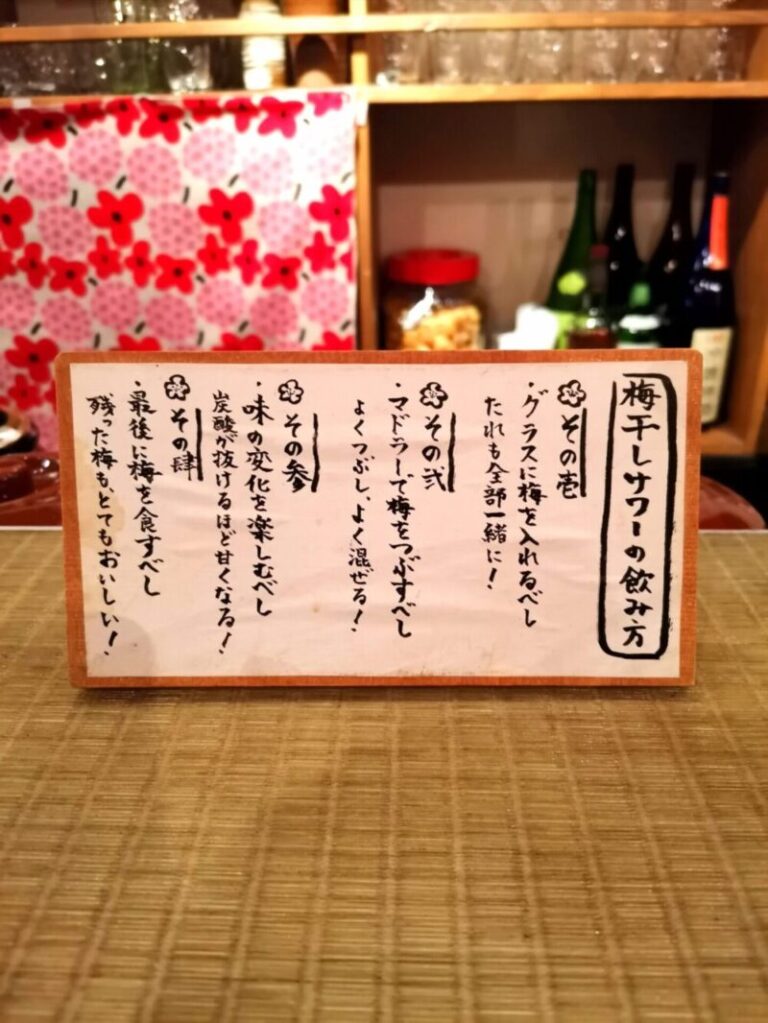 梅干しサワーの飲み方
その壱
・グラスに梅を入れるべし
たれも全部一緒に!
その弐
・マドラーで梅をつぶすべし
よくつぶし、よく混ぜる!
その参
・味の変化を楽しむべし
炭酸が抜けるほど甘くなる!
その肆
・最後に梅を食すべし
残った梅も、とてもおいしい!